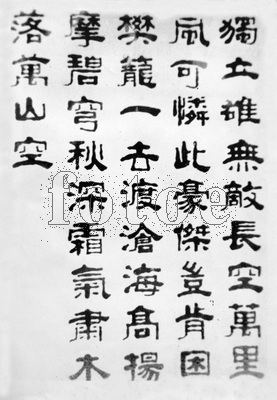 獨立雄無敵長空萬里
風可憐此豪傑豈肯困
樊籠一去渡滄海高揚
摩碧穹秋深霜氣肅木
落萬山空
fotoe